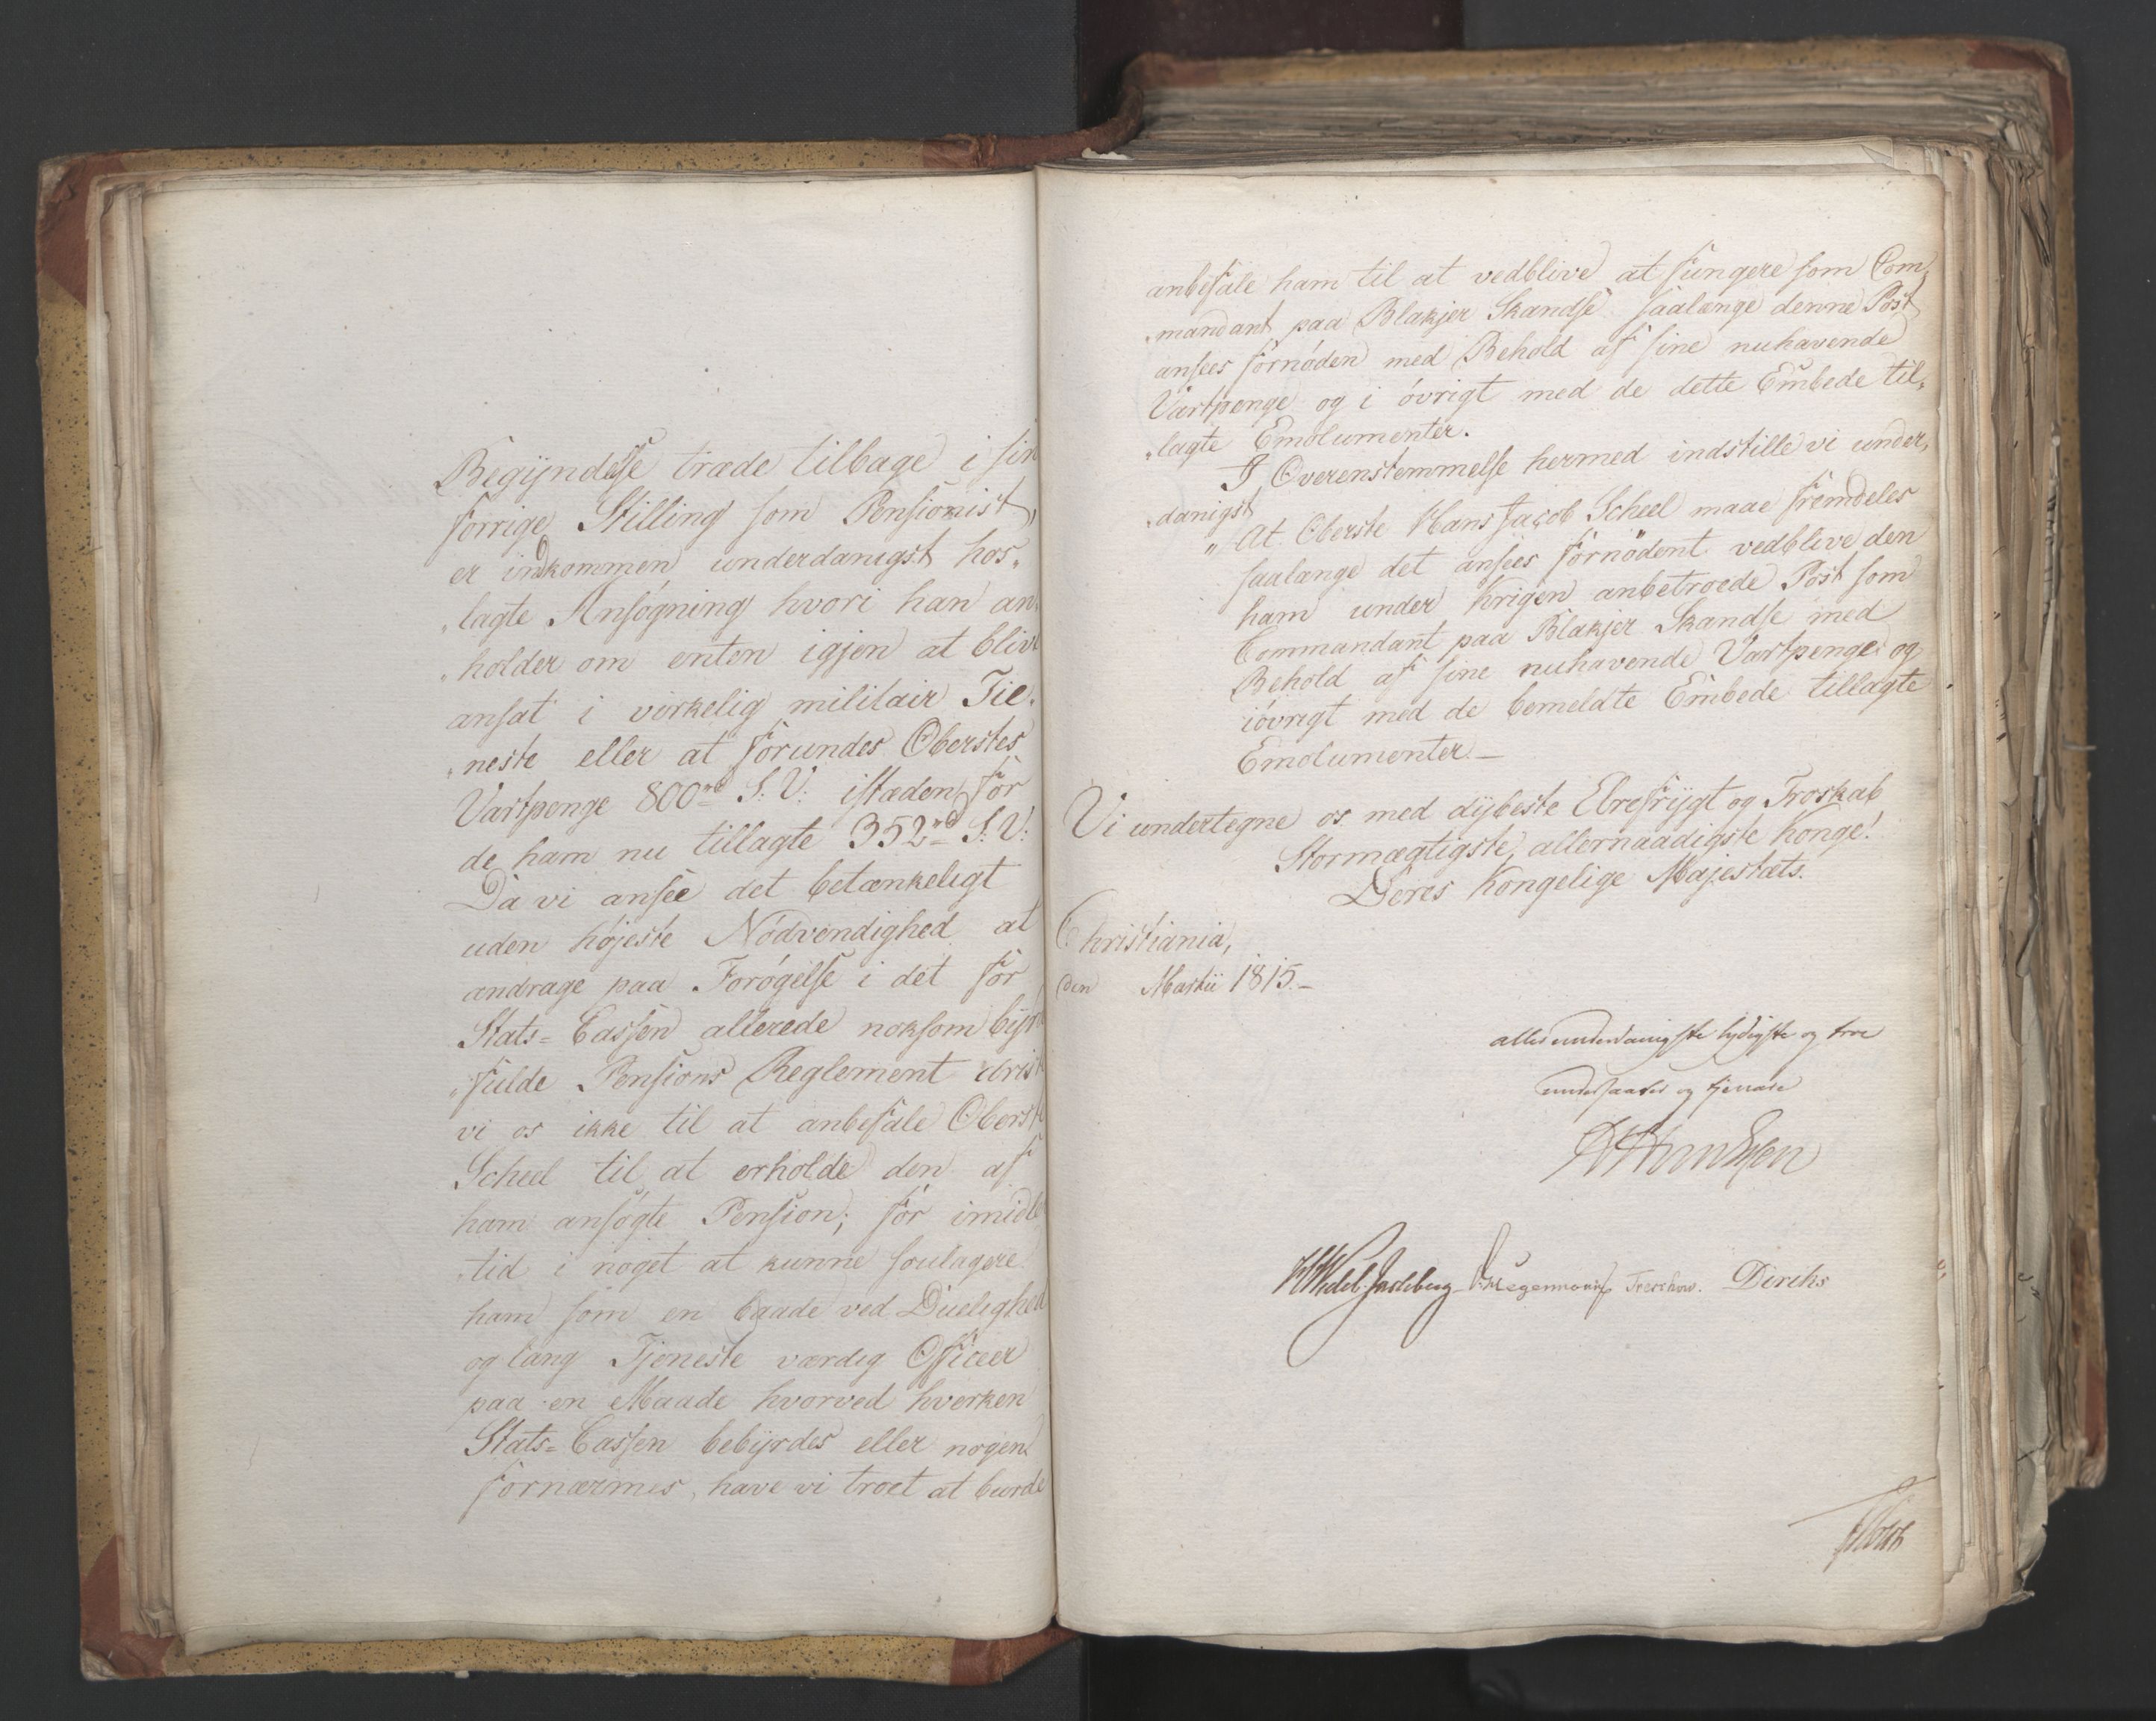 Begyndelse træde tilbage i sin
forrige Stilling som Pensionist,
er indkommen underdanigst hos„
„lagte Ansøgning hvori han an„
„holder om enten igjen at blive
ansat i virkelig militair Tie„
„neste eller at forundes Oberstes
Vartpenge 800 rd S: V: istæden for
de ham nu tillagte 352 rd S: V:
Da vi ansee det betænkeligt
uden højeste Nødvendighed at
andrage paa Forøgelse i det for
Stats=Cassen allerede noksom byr
„fulde Pensions Reglement drist
vi os ikke til at anbefale Oberst
Scheel til at erholde den af
ham ansøgte Pension; for imidle
„tid i noget at kunne soulagere
ham som en baade ved Duelighed
og lang Tjeneste værdig Officer
paa en Maade hvorved hverken
Stats=Cassen bebyrdes eller nogen
fornærmes, have vi troet at burde
anbefale ham til at vedblive at fungere som Com„
„mandant paa Blakjer Skandse saalænge denne Post
ansees fornøden med Behold af sine nuhavende
Vartpenge og i øvrigt med de dette Embede til„
„lagte Emolumenter.
I Overenstemmelse hermed indstille vi under„
„danigst
„ At Oberste Hans Jacob Scheel maae fremdeles
saalænge det ansees fornødent vedblive den
ham under Krigen anbetroede Post som
Commandant paa Blakjer Skandse med
Behold af sine nuhavende Vartpenge og
iøvrigt med de bemeldte Embede tillagte
Emolumenter.—
Vi undertegne os med dybeste Ebrefrygt og Troskab
Stormægtigste, allernaadigste Konge!
Deres Kongelige Majestæts.
Christiania,
den Martii 1815.—
allerunderdanigste lydigste og troe
undersaatter og tjenere
HWedel Jarlsberg Hegermann Treschow. Diriks